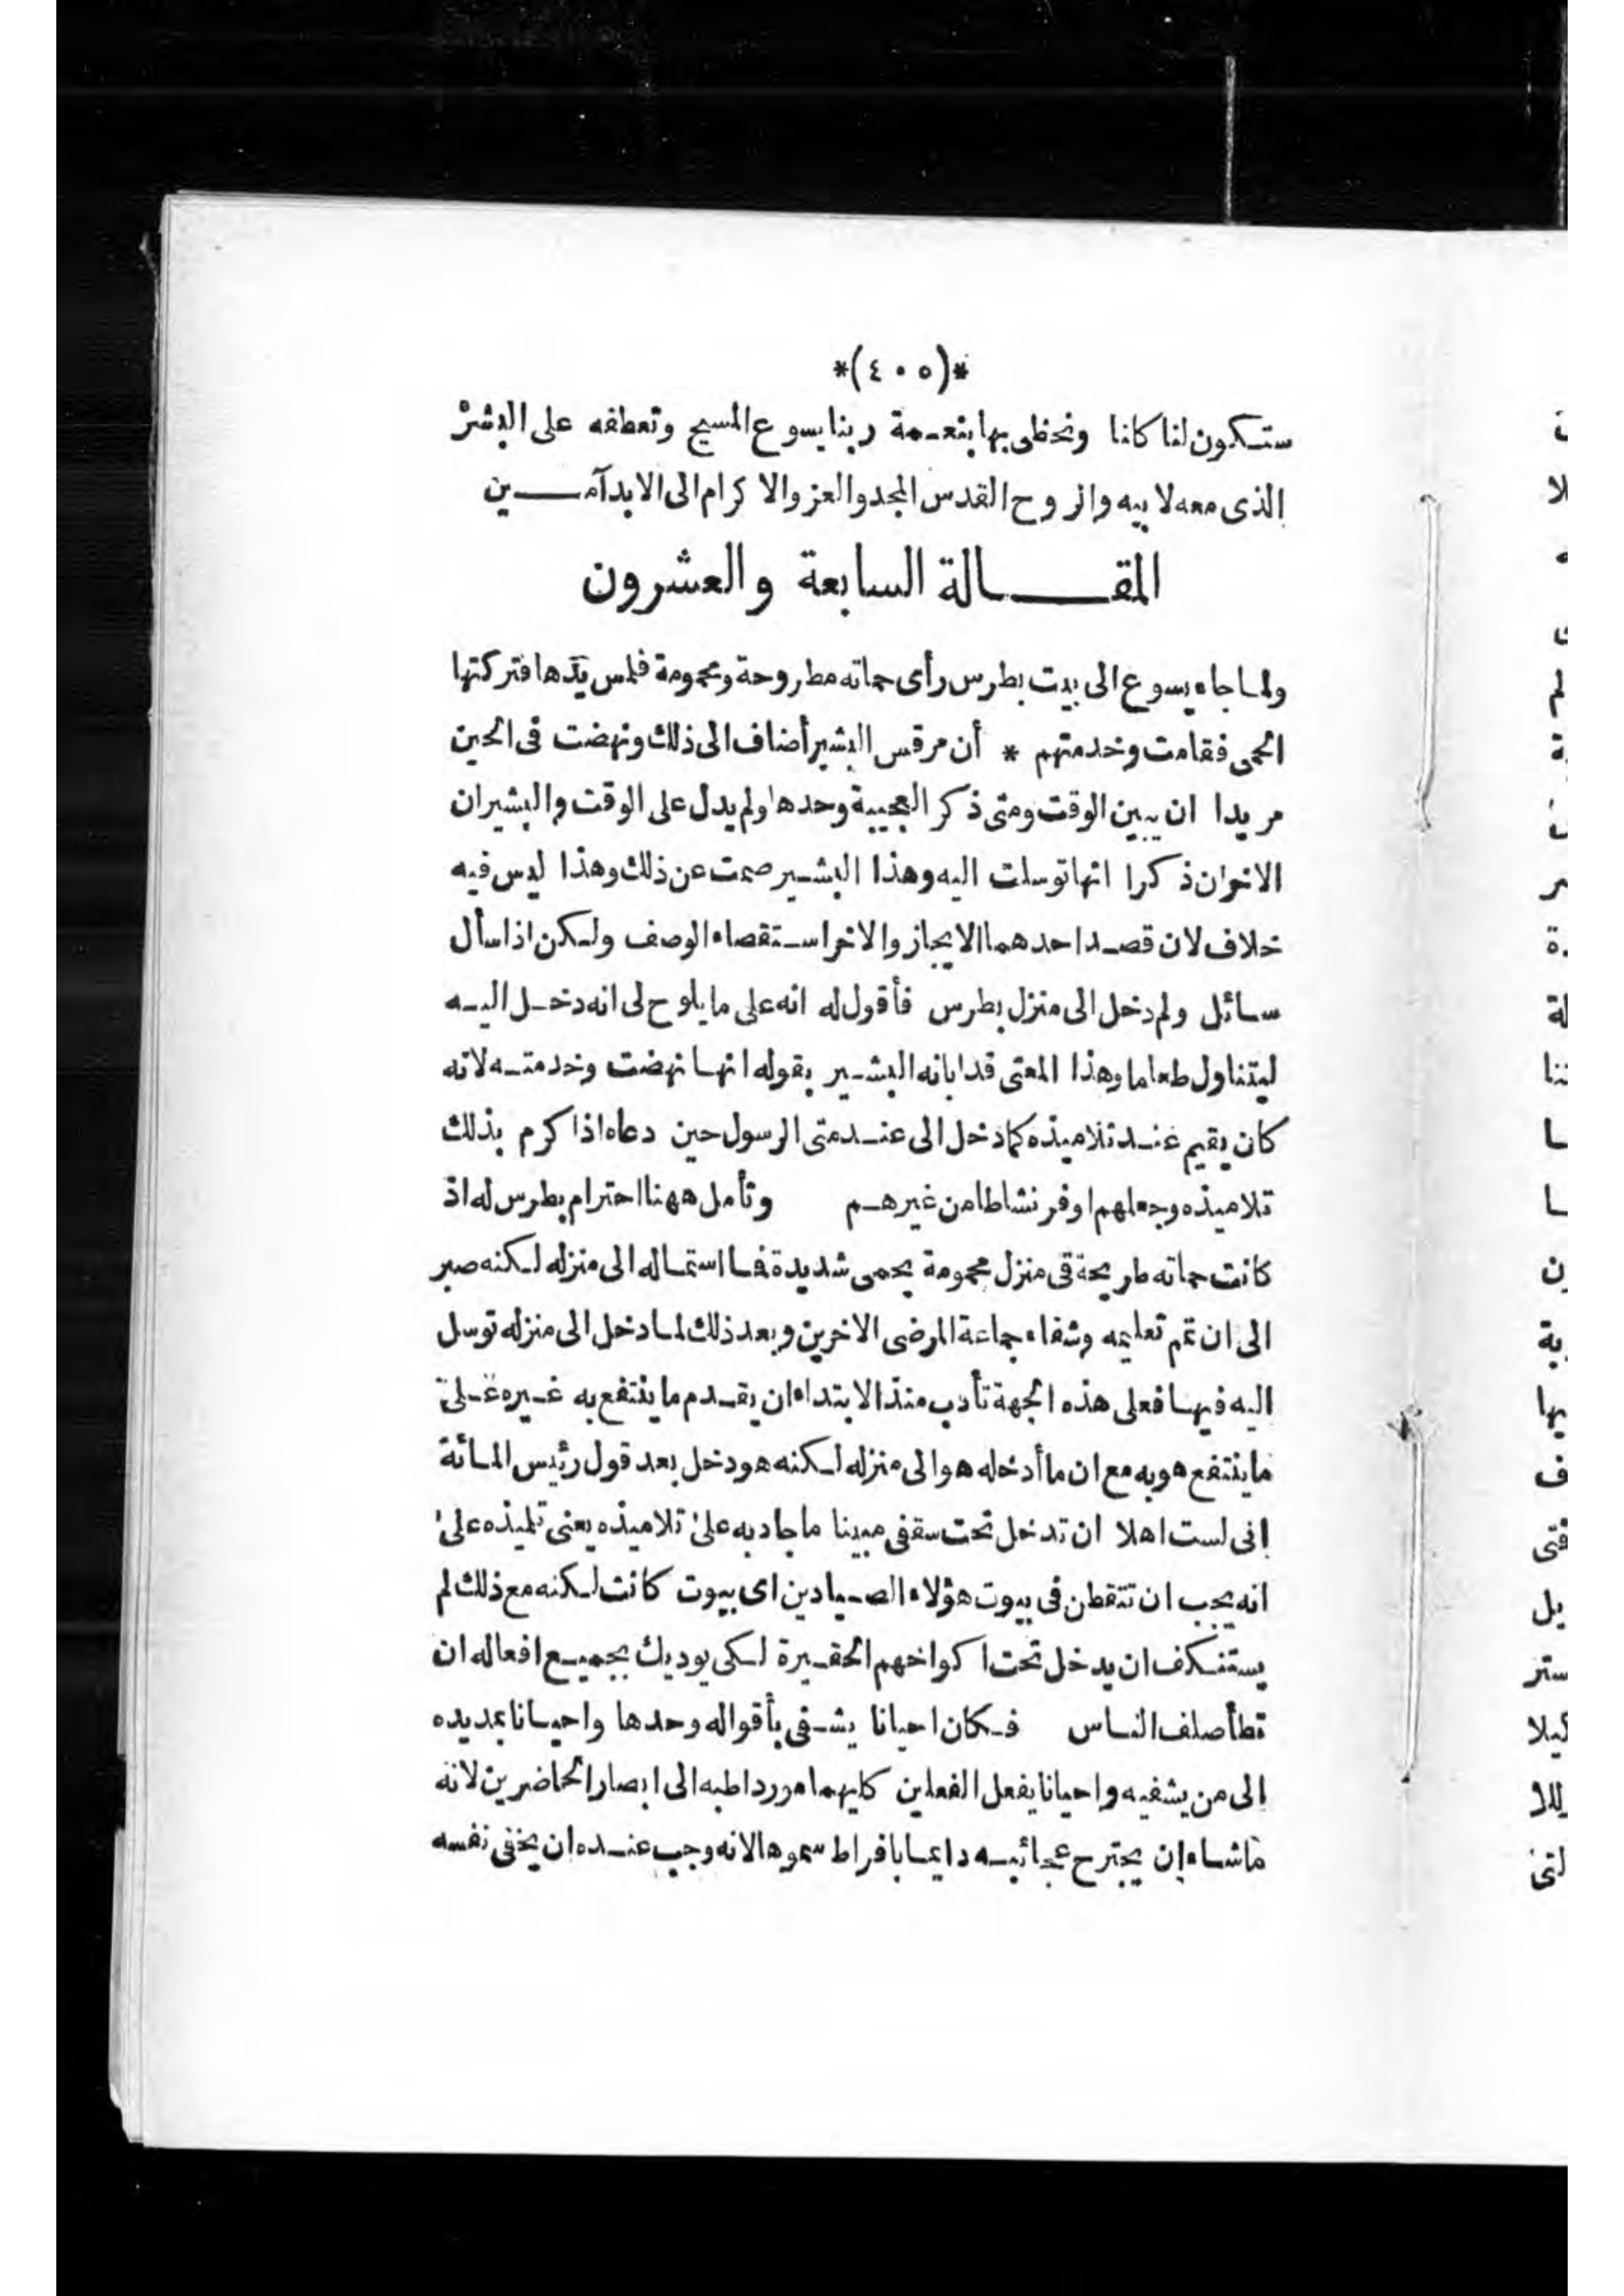 *(٤٠٥)*
ستكون لنا كانا ونحظى بها بنعمة ربنا يسوع المسيح وتعطفه على البشر
الذى معه لابيه والروح القدس المجد والعز والاكرام الى الابد آمين
المقالة السابعة والعشرون
ولما جاء يسوع الى بيت بطرس رأى حماته مطروحة ومحمومة فلمس يدها فتركتها
الحمى فقامت وخدمتهم * أن مرقس البشير أضاف الى ذلك ونهضت فى الحين
مريدا ان يبين الوقت ومتى ذكر العجيبة وحدها ولم يدل على الوقت والبشيران
الاخران ذكرا انها توسلت اليه وهذا البشير صمت عن ذلك وهذا ليس فيه
خلاف لان قصد احدهما الايجاز والاخر استقصاء الوصف ولكن اذا سأل
سائل ولم دخل الى منزل بطرس فأقول له انه على ما يلوح لى انه دخل اليه
ليتناول طعاما وهذا المعتى قد ابانه البشير بقوله انها نهضت وخدمته لانه
كان يقيم عند تلاميذه كما دخل الى عند متى الرسول حين دعاه اذا كرم بذلك
تلاميذه وجعلهم اوفر نشاطا من غيرهم وتأمل ههنا احترام بطرس له اذ
كانت حماته طريحة فى منزل محمومة بحمى شديدة فما استماله الى منزله لكنه صبر
الى ان تمم تعليمه وشفاء جماعة المرضى الاخرين وبعد ذلك لما دخل الى منزله توسل
اليه فيها فعلى هذه الجهة تأدب منذ الابتداء ان يقدم ما ينتفع به غيره على
ما ينتفع هو به مع ان ما أدخله هو الى منزله لكنه هو دخل بعد قول رئيس المائة
انى لست اهلا ان تدخل تحت سقفى مبينا ما جاد به على تلاميذه يعنى تلميذه على
انه يجب ان تتفطن فى بيوت هؤلاء الصيادين اى بيوت كانت لكنه مع ذلك لم
يستنكف ان يدخل تحت اكواخهم الحقيرة لكى يوديك بجميع افعاله ان
تطأ صلف الناس فكان احيانا يشفى بأقواله وحدها واحيانا بمد يده
الى من يشفيه واحيانا يفعل الفعلين كليهما مورداطبه الى ابصار الحاضرين لانه
ماشاء ان يجترح عجائبه دايما بافراط سموها لانه وجب عنده ان يخفى نفسه